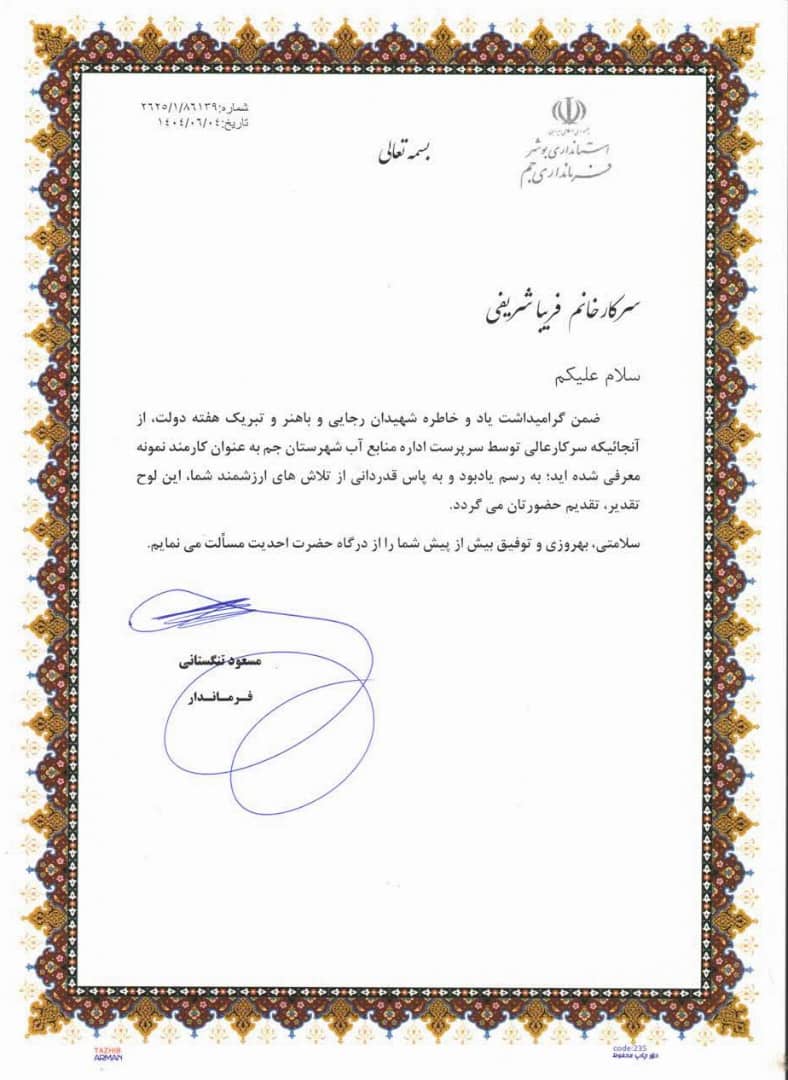 جمهوری اسلامی ایران
استانداری بوشهر
فرمانداری جم
بسمه تعالی
شماره:۲۶۲۵/۱/۸۶۱۳۹
تاریخ:۱۴۰۴/۰۶/۰۴
سرکار خانم فریبا شریفی
سلام علیکم
ضمن گرامیداشت یاد و خاطره شهیدان رجایی و باهنر و تبریک هفته دولت، از
آنجائیکه سرکارعالی توسط سرپرست اداره منابع آب شهرستان جم به عنوان کارمند نمونه
معرفی شده اید؛ به رسم یادبود و به پاس قدردانی از تلاش های ارزشمند شما، این لوح
تقدیر، تقدیم حضورتان می گردد.
سلامتی، بهروزی و توفیق بیش از پیش شما را از درگاه حضرت احدیت مسألت می نمایم.
مسعود تنگستانی
فرماندار
TAZHIB
ARMAN
code:235
حق چاپ محفوظ